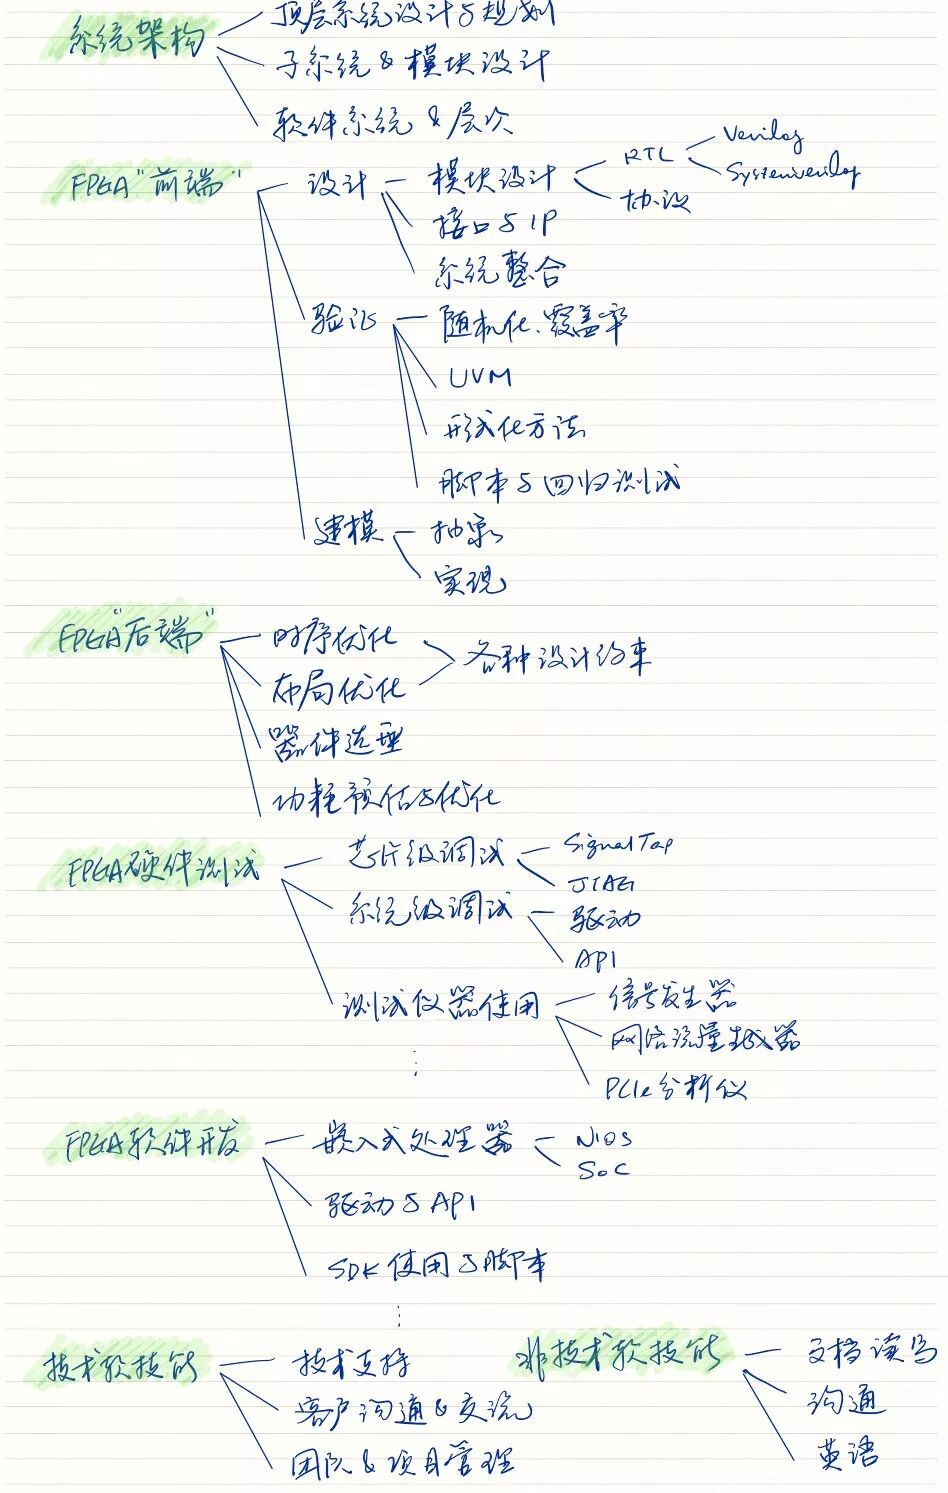 系统架构
顶层系统设计与规划
子系统 & 模块设计
软件系统 & 层次
FPGA"前端"
设计
模块设计
RTL
Verilog
SystemVerilog
协议
接口与IP
系统整合
验证
随机化、覆盖率
UVM
形式化方法
脚本与回归测试
建模
抽象
实现
FPGA"后端"
时序优化
布局优化
各种设计约束
器件选型
功耗预估与优化
FPGA硬件测试
芯片级调试
SignalTap
JTAG
系统级调试
驱动
API
测试仪器使用
信号发生器
网络流量生成器
PCIe分析仪
⋮
FPGA软件开发
嵌入式处理器
NIOS
SoC
驱动与API
SDK使用与脚本
⋮
技术软技能
技术支持
客户沟通 & 交流
团队 & 项目管理
非技术软技能
文档读写
沟通
英语